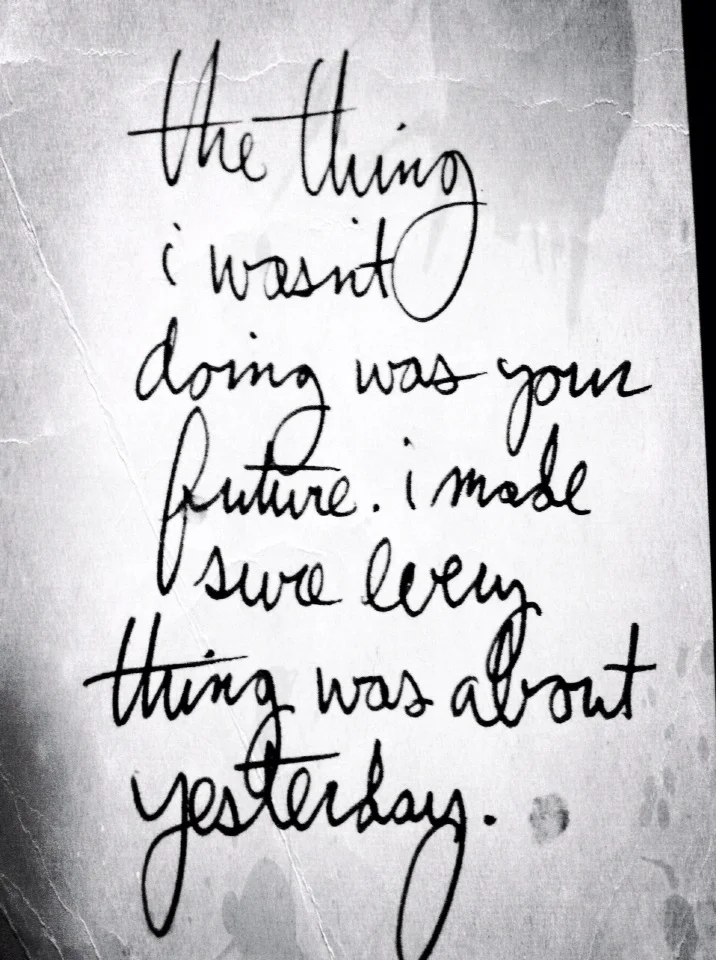 the thing
i wasnt
doing was your
future. i made
sure every
thing was about
yesterday.